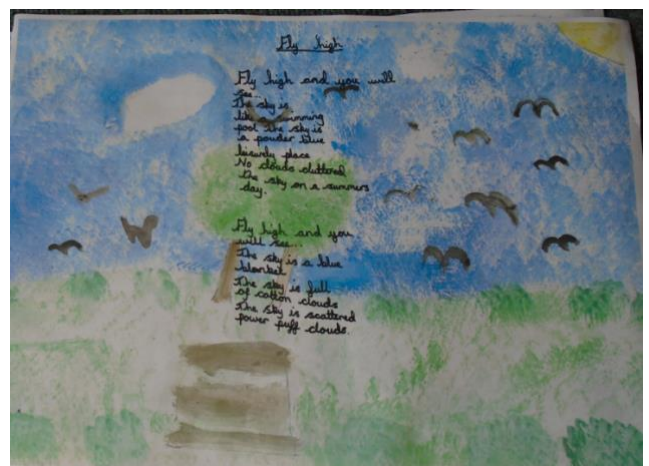 Fly high
Fly high and you will
see...
The sky is
like swimming
pool the sky is
a powder blue
place
No clouds cluttered
The sky on a summers
day.
Fly high and you
will see...
The sky is a blue
blanket
The sky is full
of cotton clouds
The sky is scattered
power puff clouds.